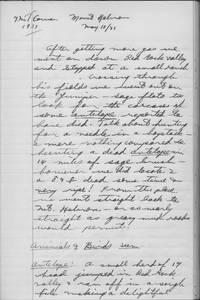 McCowan Mount Hebron
1921 May 18/21
After getting more gas we
went on down Red Rock valley
and stopped at a small ranch
crossing through
his fields we went out on
to sage flats to
look for the carcases of
some antelope reported to
have died. Talk about looking
for a needle in a haystack -
a mere nothing compared to
hunting a dead antelope in
14 miles of sage brush -
however we did locate 2
or 3 & dead some time and
very ripe! From this place
we went straight back to
Mt. Hebron - or as nearly
straight as greasy mud roads
would permit!
Animals & Birds seen
Antelope: A small herd of 17
head jumped in Red Rock
valley & ran off in a
making a delightful